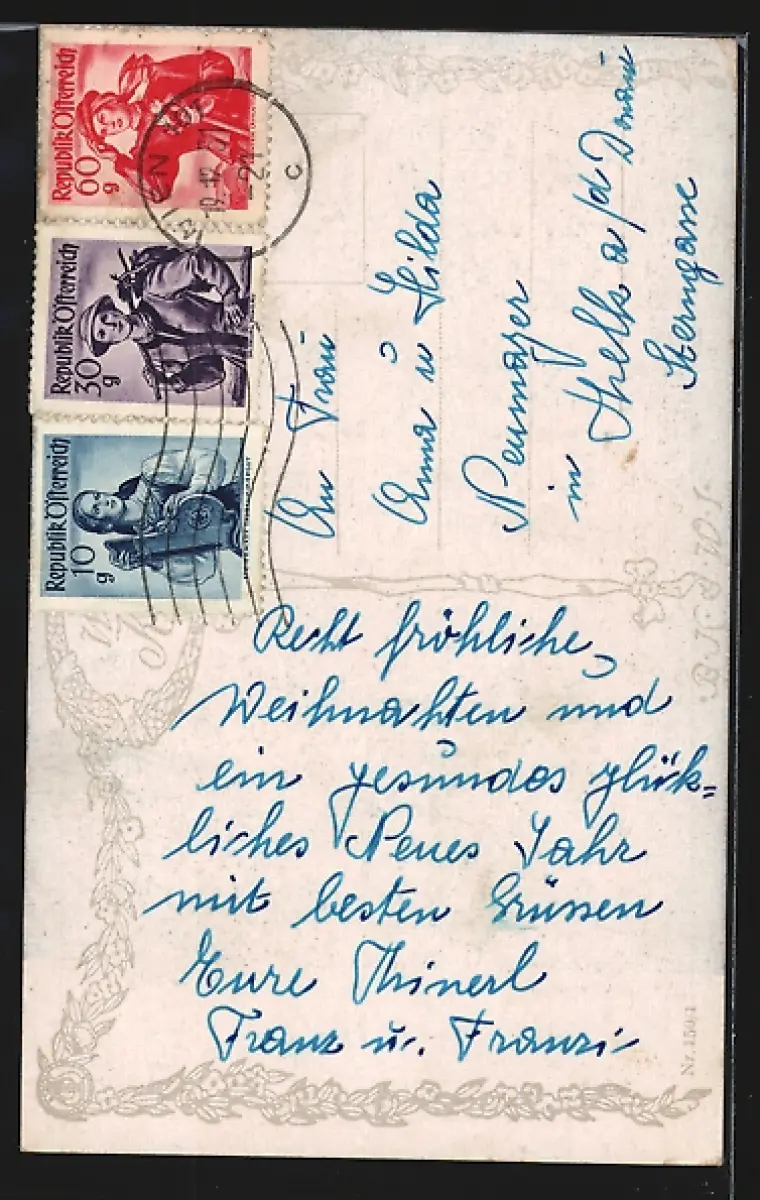 Republik Österreich
60
g
Republik Österreich
30
g
Republik Österreich
10
g
WIEN 101
19.12.51-21
C
An Frau
Anna u Hilda
Neumayer
in a/d Donau
Sterngasse
Recht fröhliche
Weihnachten und
ein gesundes glük=
liches Neues Jahr
mit besten Grüssen
Eure Thinerl
Franz u. Franzi
B.K.W.I.
Nr. 150/1